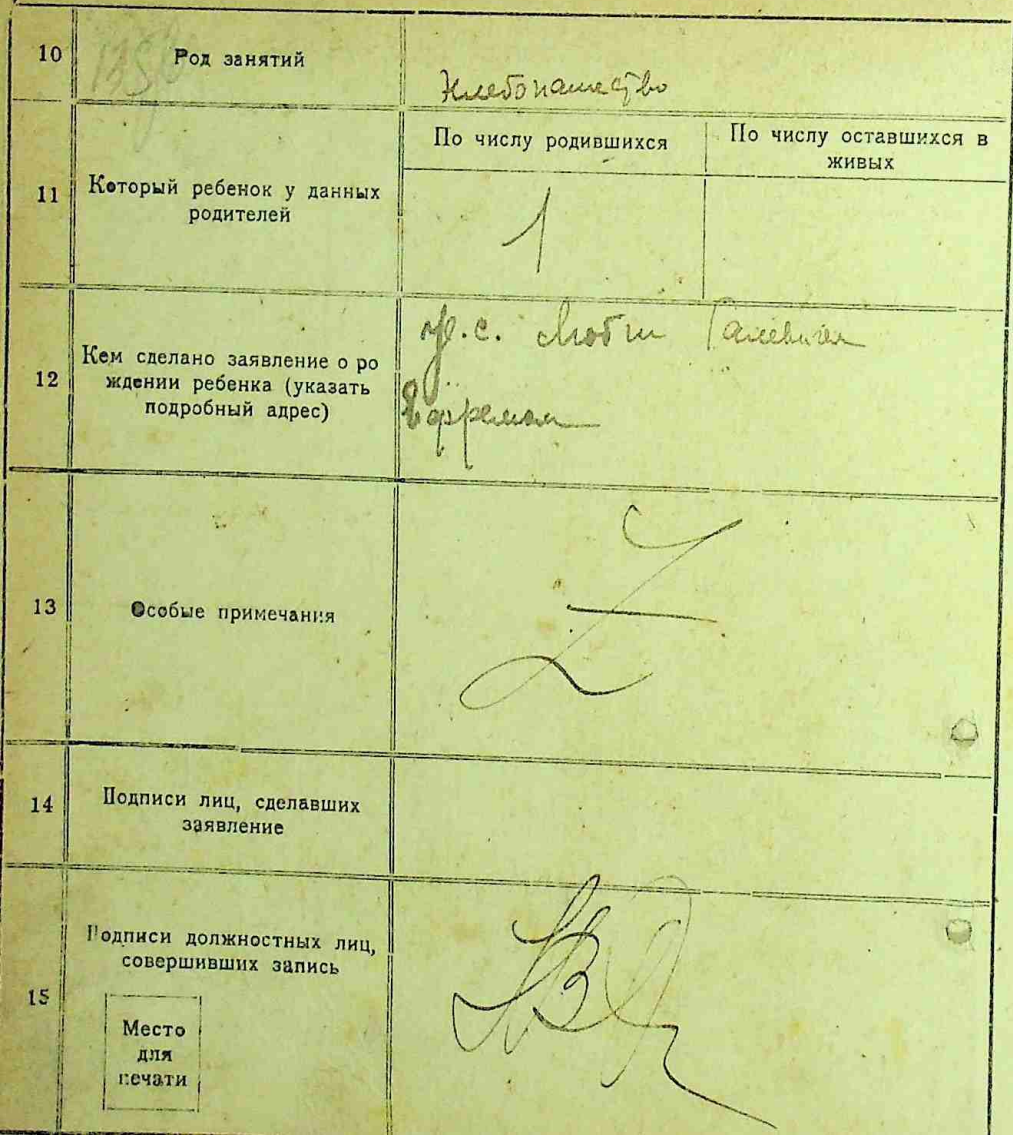 10
Род занятий
Хлебопашество
11
Который ребенок у данных
родителей
По числу родившихся
По числу оставшихся в
живых
1
12
Кем сделано заявление о ро
ждении ребенка (указать
подробный адрес)
гр. с.
Ефремом
13
Особые примечания
Z
14
Подписи лиц, сделавших
заявление
15
Подписи должностных лиц,
совершивших запись
Место
для
печати